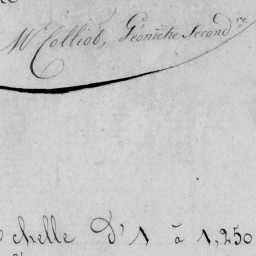 Mr Colliot, Géomètre Second.re
chelle D'1 à 1,250